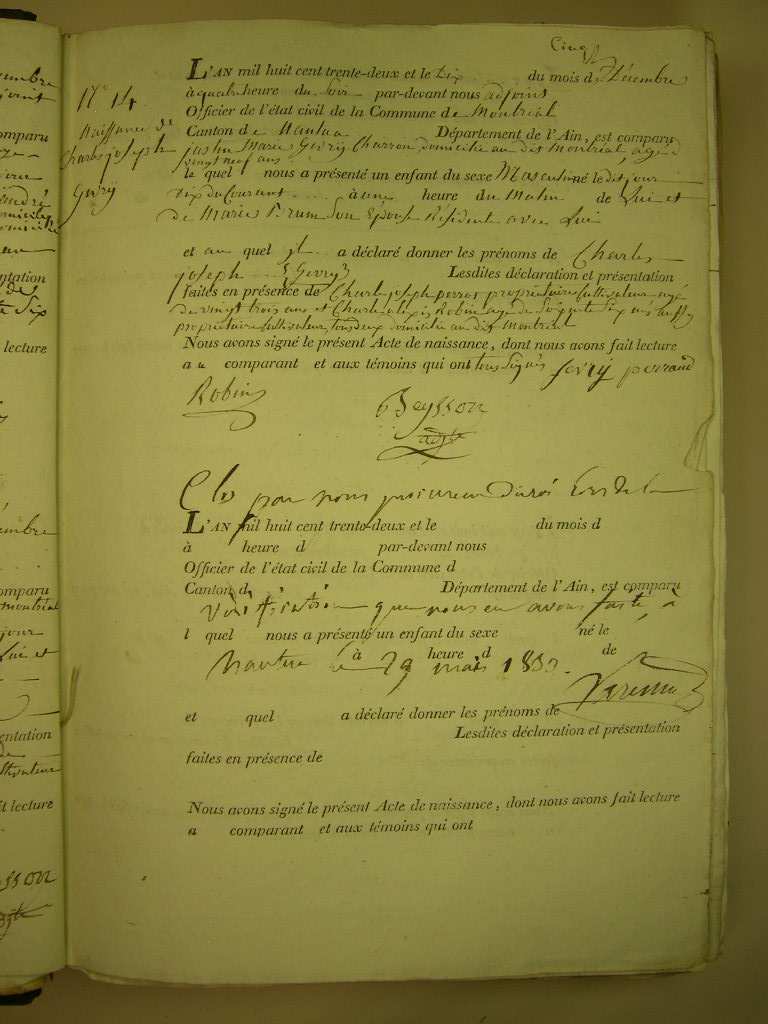 Cinq
L'AN mil huit cent trente-deux et le Dix du mois de Décembre
à quatre heure du Soir par-devant nous adjoint
Officier de l'état civil de la Commune de Montréal
Canton de Nantua Département de l'Ain, est comparu
Marie Gevry Charron domicilié au dit Montréal, âgé de
vingt neuf ans
le quel nous a présenté un enfant du sexe Masculin né le dit jour
Dix du Courant à une heure du Matin de Lui et
de Marie Brun Son Epouse Résident avec Lui
et au quel il a déclaré donner les prénoms de Charles
joseph Gevry Lesdites déclaration et présentation
faites en présence de Charle joseph perros propriétaire Cultivateur agé
de vingt trois ans et Charle alexis Robin agé de Soixante Six ans
propriétaire Cultivateur tous deux domicilié au dit Montréal
Nous avons signé le présent Acte de naissance, dont nous avons fait lecture
au comparant et aux témoins qui ont tous Signés Gevry perraud
Robin Beysson
adjt
N° 14
Naissance de
Charles joseph
Gevry
Clos par nous procureur du roi
L'AN mil huit cent trente-deux et le du mois d
à heure d par-devant nous
Officier de l'état civil de la Commune d
Canton d Département de l'Ain, est comparu
Vérification que nous en avons faite, à
l quel nous a présenté un enfant du sexe né le
à heure d de
Nantua le 29 mars 1833.
et quel a déclaré donner les prénoms de
Lesdites déclaration et présentation
faites en présence de
Nous avons signé le présent Acte de naissance, dont nous avons fait lecture
a comparant et aux témoins qui ont